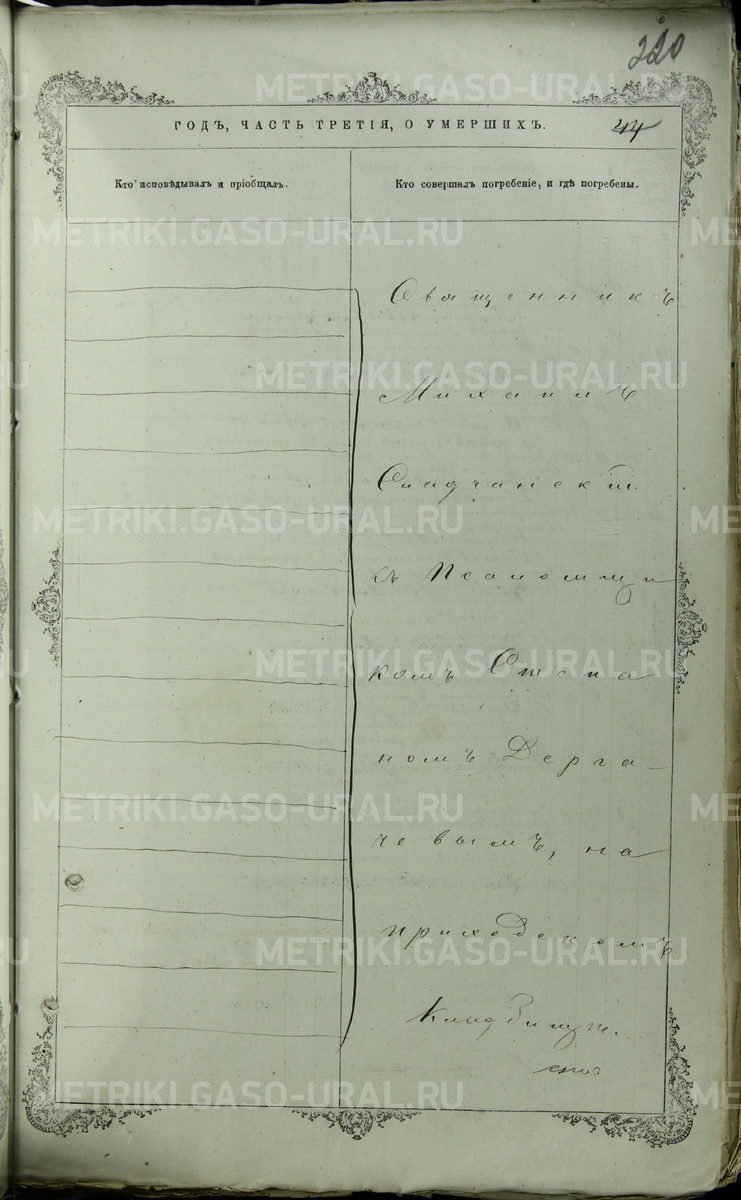 320
ГОДЪ, ЧАСТЬ ТРЕТІЯ, О УМЕРШИХЪ.
44
Кто исповѣдывалъ и пріобщалъ.
Кто совершалъ погребеніе, и гдѣ погребены.
Священникъ
Михаилъ
Сладчанскій
съ Псаломщи
комъ Степа
номъ Дерга-
чевымъ, на
приходскомъ
кладбищѣ.
METRIKI.GASO-URAL.RU